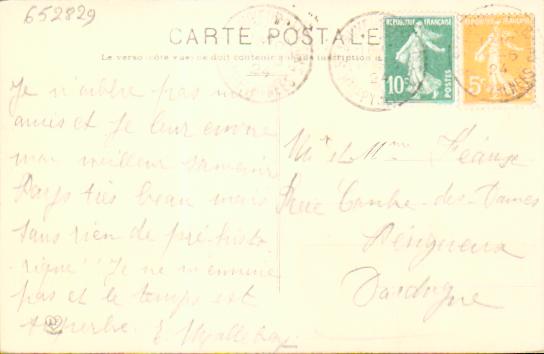 652829
CARTE POSTALE
Le verso (côté vue) ne doit contenir que l'inscription
REPUBLIQUE FRANÇAISE
10c
POSTES
REPUBLIQUE FRANÇAISE
5c
24
24
Je n'oublie pas mes
amies et je leur envoie
mon meilleur souvenir
Pays très beau mais
sans rien de "préhisto
rique" Je ne m'ennuie
pas et le temps est
superbe. E.
Mr et Mme
Rue des Dames
Périgueux
Dordogne